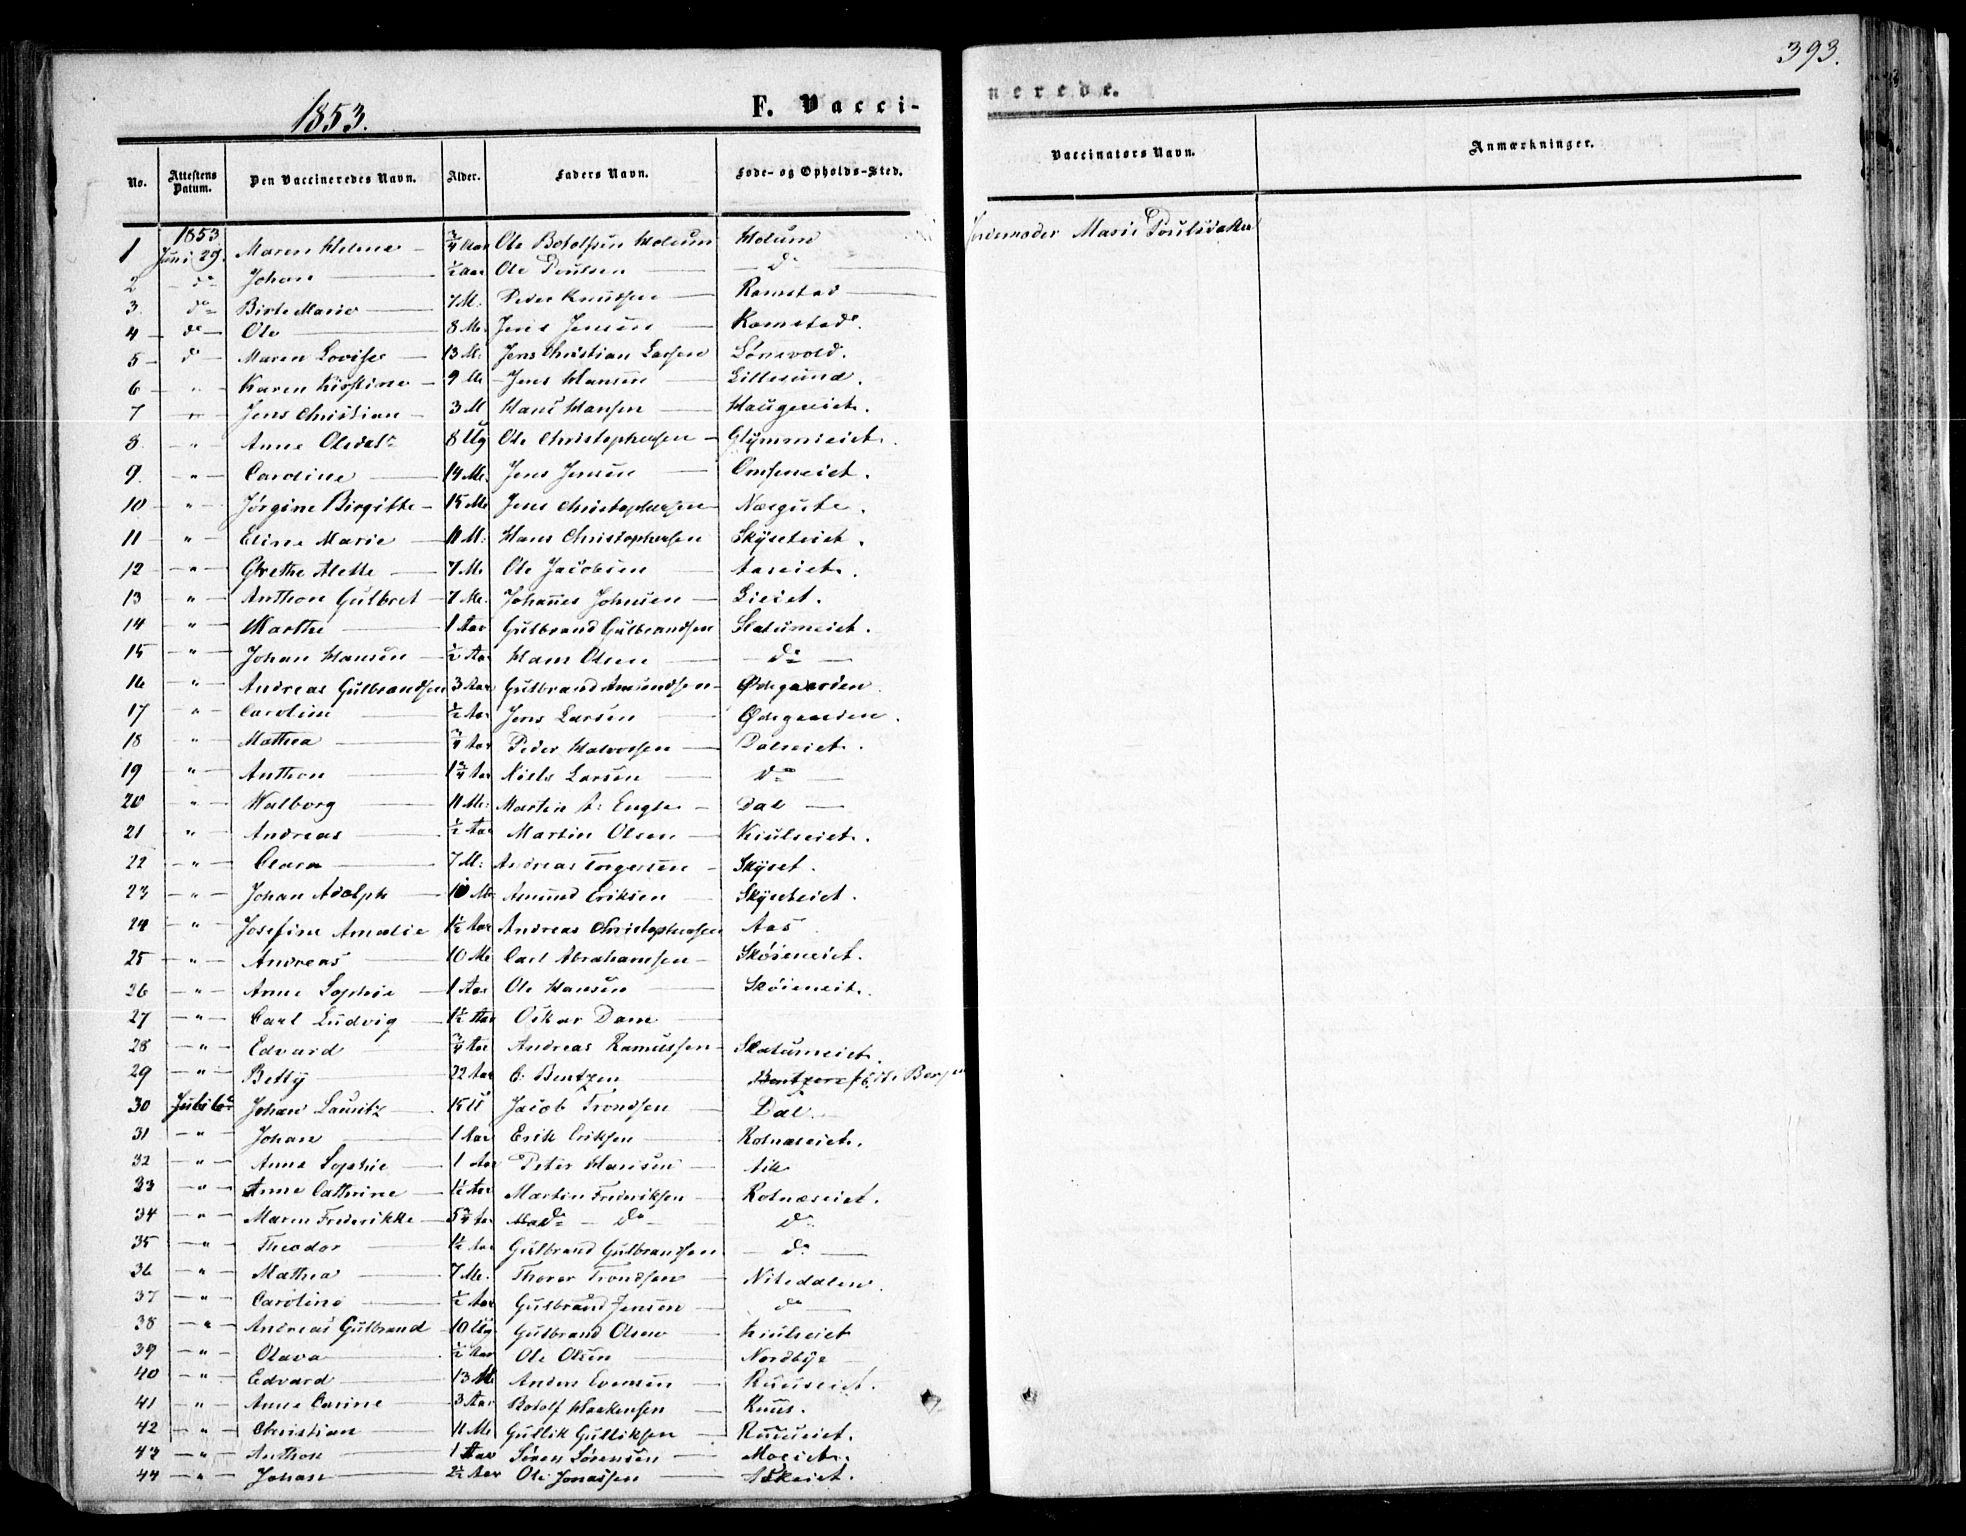 393.
1853.
F. Vacci-
nerede.
No. Attestens Datum. Den Vaccineredes Navn. Alder. Faders Navn. Føde- og Opholds-Sted. Vaccinators Navn. Anmærkninger.
1853
1 Juni 29. Maren Helene ¾ Aar Ole Botolfsen Holum Holum Jordemoder Marie Poulsdatter
2 do Johan ½ Aar Ole Poulsen do
3. do Birte Marie 7 M. Peder Knudsen Ramstad
4 do Ole 8 M. Jens Jensen Ramstad.
5 do Maren Lovise 13 M. Jens Christian Larsen Lønsvold.
6 " Karen Kirstine 9 M Jens Hansen Lillesund.
7 " Jens Christian 3 M Hans Hansen Haugereiet.
8. " Anne Olsdatr 8 Ug Ole Christophersen Glymmeiet.
9. " Caroline 14 M. Jens Jensen
10 " Jørgine Birgitte 15 M. Jens Christophersen
11 " Eline Marie 11 M. Hans Christophersen Skyseteiet.
12 " Grethe Alette 7 M. Ole Jacobsen Aaseiet.
13 " Anthon Gulbret 7 M. Johannes Johnsen Lieiet.
14 " Marthe 1 Aar Gulbrand Gulbrandsen Slatumeiet.
15 " Johan Hansen ½ Aar Hans Olsen do
16 " Andreas Gulbrandsen 3 Aar Gulbrand Amundsen Ødegaarden.
17 " Caroline ½ Aar Jens Larsen Ødegaarden.
18 " Mathea ¾ Aar Peder Halvorsen Daleiet.
19 " Anthon 1¾ Aar Niels Larsen do
20 " Walborg 11 M. Martin A. Engse Dal
21 " Andreas ½ Aar Martin Olsen Kiulseiet.
22 " Clara 7 M. Andreas Torgersen Skyset.
23 " Johan Adolph 10 M. Amund Eriksen Skyseteiet.
24 " Josefine Amalie 1½ Aar Andreas Christophersen Aas.
25 " Andreas 10 M. Carl Abrahamsen Skøieneiet.
26 " Anne Sophie 1 Aar Ole Hansen Skøieneiet.
27 " Carl Ludvig 1½ Aar Oskar Dam
28 " Edvard ¾ Aar Andreas Ramussen Slatumeiet.
29 " Betty 22 Aar C. Bentzen
30 Juli Johan Lauritz 15 U Jacob Trondsen Dal.
31 " Johan 1 Aar Erik Eriksen Rotnæseiet.
32 " Anne Sophie 1 Aar Peter Hansen
33 " Anne Cathrine 1½ Aar Martin Frideriksen Rotnæseiet.
34 " Maren Frederikke 5¾ Aar do do do
35 " Theodor 1½ Aar Gulbrand Gulbrandsen do
36 " Mathea 7 M. Thorer Trondsen Nitedalen.
37 " Caroline ½ Aar Gulbrand Jensen do
38 " Andreas Gulbrand 10 Ug. Gulbrand Olsen Kiulseiet
39 " Olava ½ Aar Ole Olsen Nordbye
40 " Edvard 13 M Anders Evensen Ruuseiet.
41 " Anne Carine 3 Aar Botolf Haakensen Ruus.
42 " Christian 11 M. Gullik Gulliksen Ruuseiet.
43 " Anthon 1 Aar Søren Sørensen Moeiet.
44 " Johan 2½ Aar Ole Jonassen Askeiet.